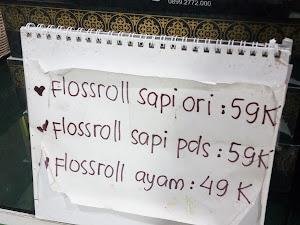 0899.2772.000
Flossroll sapi ori : 59K
Flossroll sapi pds : 59K
Flossroll ayam : 49 K